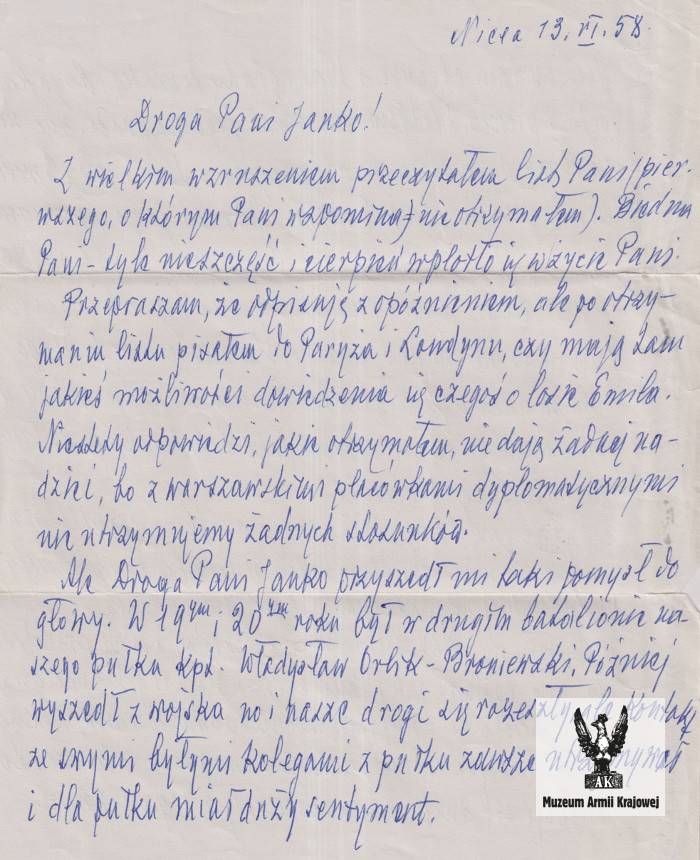 Nicea 13.VI.58.
Droga Pani Janko!
Z wielkim wzruszeniem przeczytałem list Pani (pier-
wszego, o którym Pani wspomina, nie otrzymałem). Biedna
Pani - tyle nieszczęść i cierpień wplotło się w życie Pani.
Przepraszam, że odpisuję z opóźnieniem, ale po otrzy-
maniu listu pisałem do Paryża i Londynu, czy mają tam
jakieś możliwości dowiedzenia się czegoś o losie Emila.
Niestety odpowiedzi, jakie otrzymałem, nie dają żadnej na-
dziei, bo z warszawskimi placówkami dyplomatycznymi
nie utrzymujemy żadnych stosunków.
Ale Droga Pani Janko przyszedł mi taki pomysł do
głowy. W 19tym i 20tym roku był w drugim batalionie na-
szego pułku kpt. Władysław Orlik-Broniewski. Później
wyszedł z wojska no i nasze drogi się rozeszły, ale kontakt
ze swymi byłymi kolegami z pułku zawsze utrzymywał
i dla pułku miał duży sentyment.
AK
Muzeum Armii Krajowej